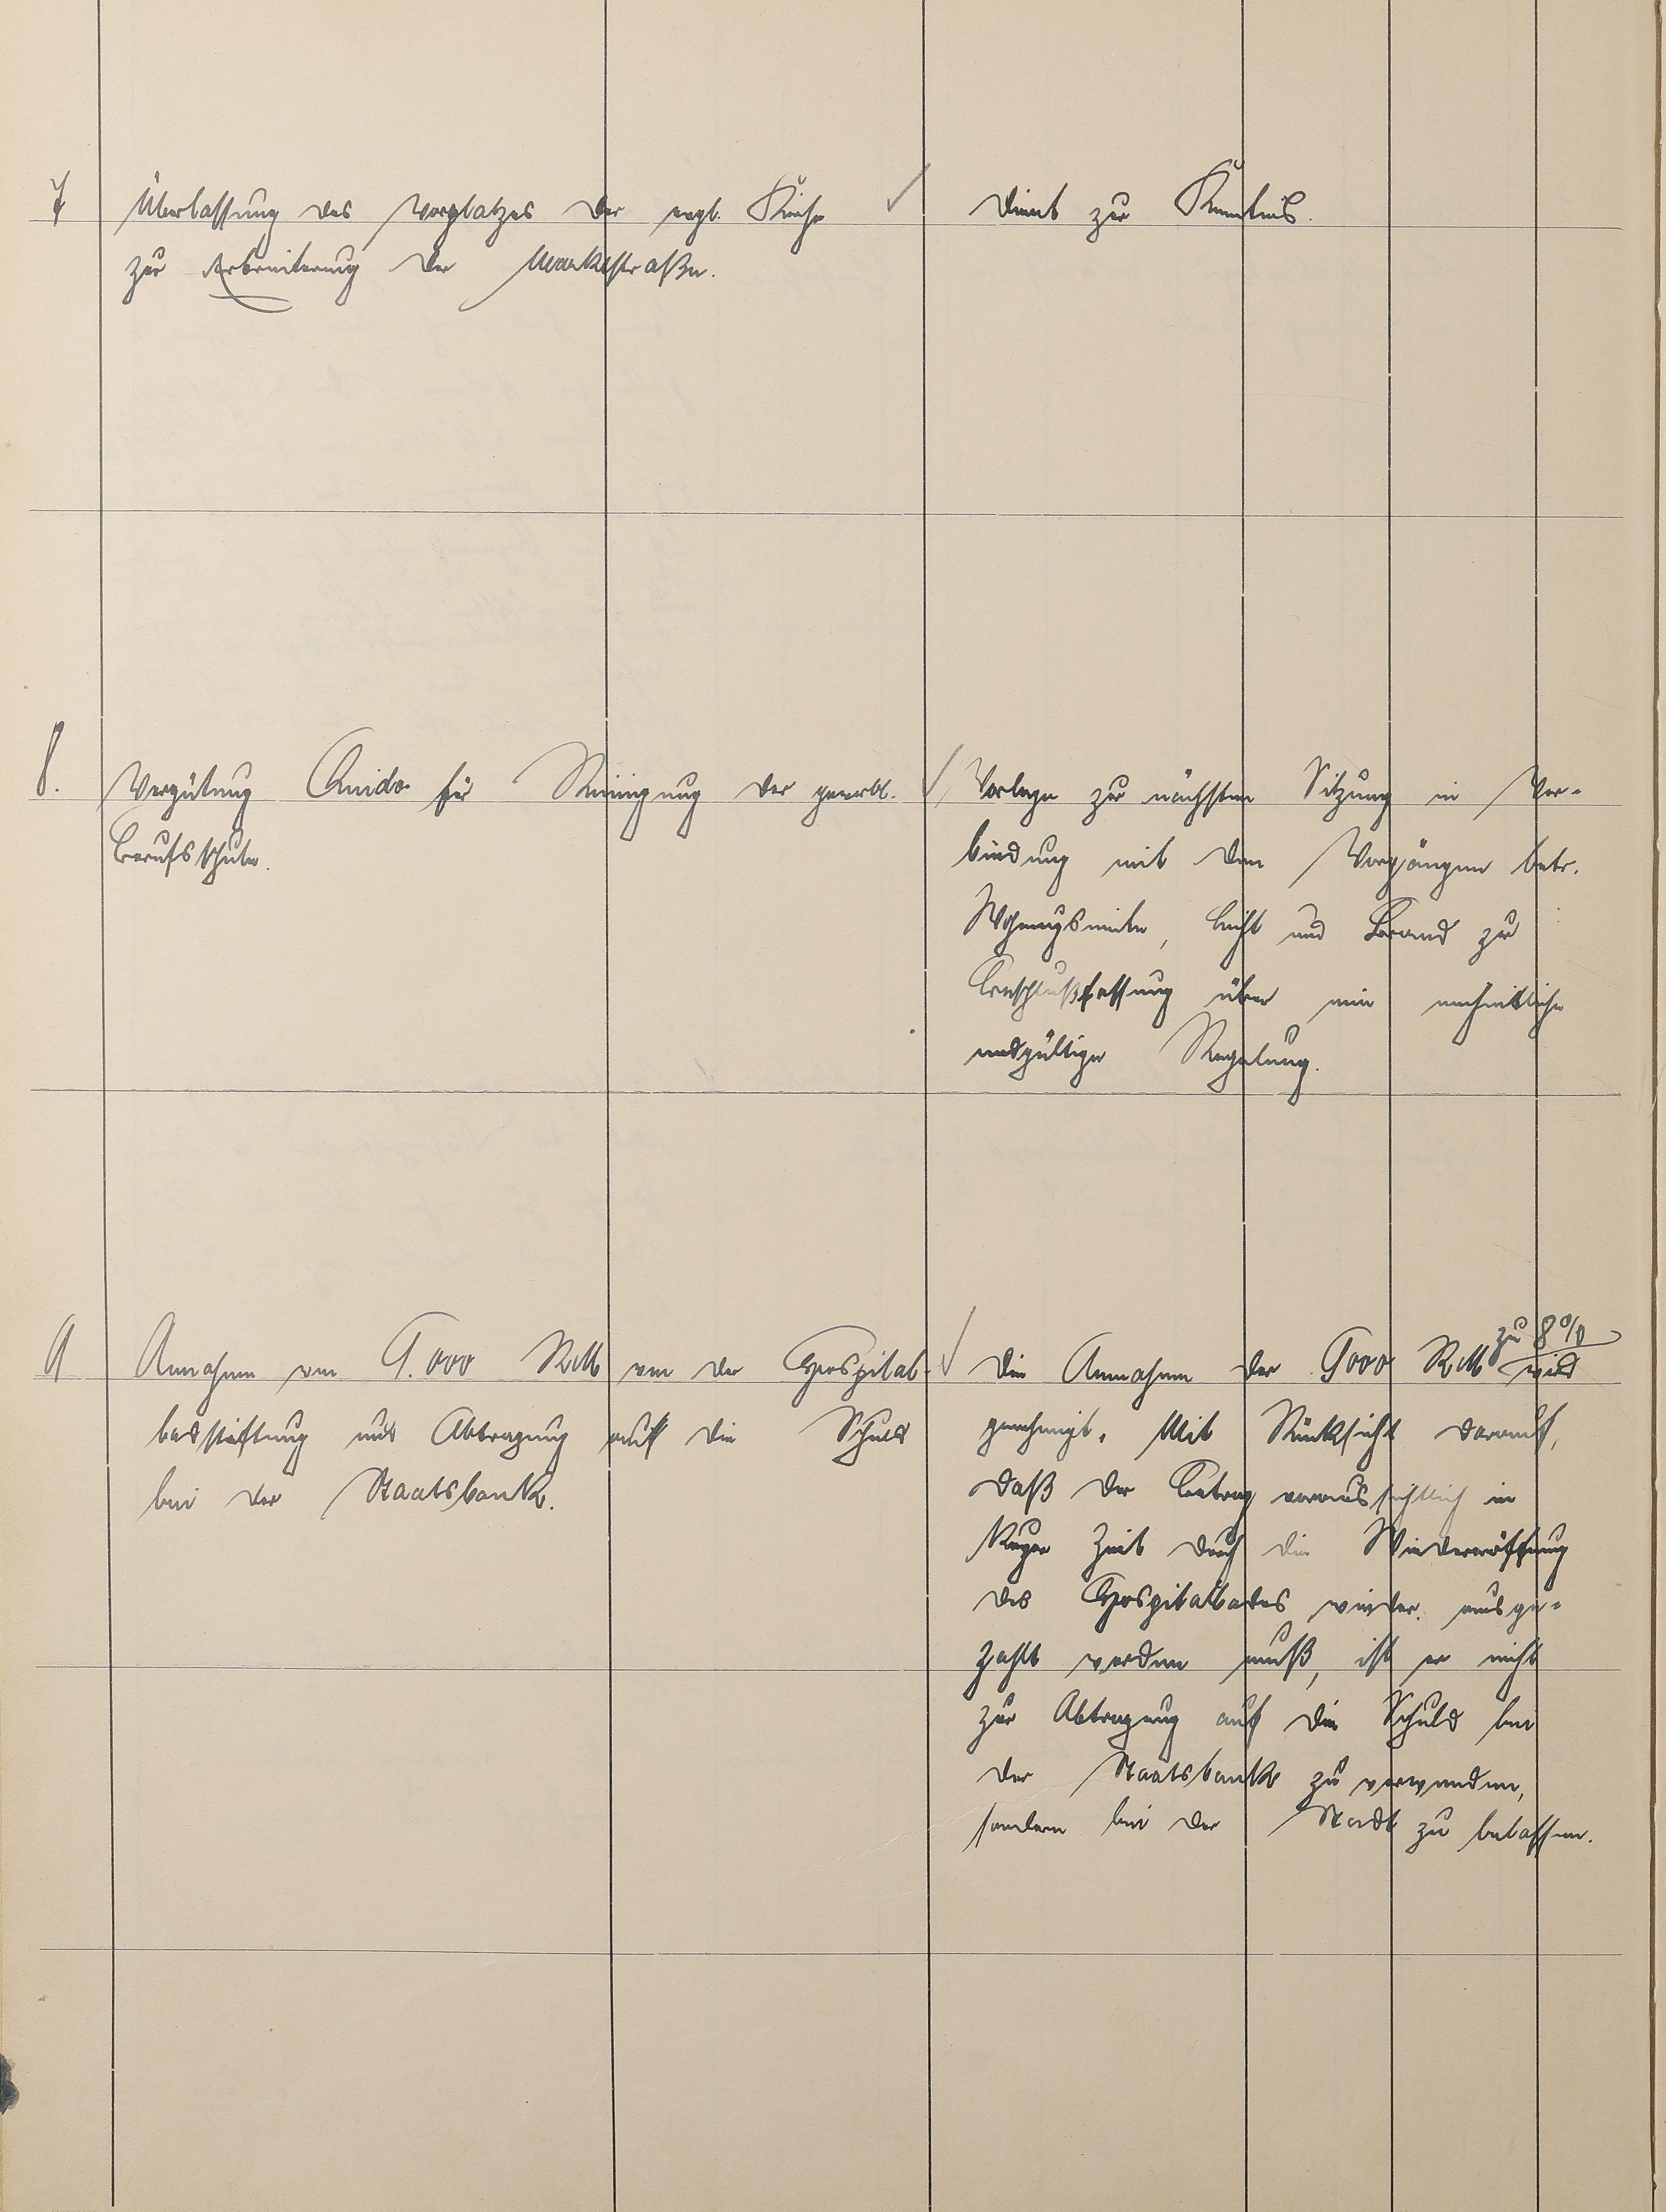 7
Überlassung des Vorplatzes der evgl. Kirche
zur Verbreiterung der Marktstraße.
✓ Dient zur Kenntnis.
8.
Vergütung für Reinigung der gewerbl.
Berufsschule.
✓ Vorlage zur nächsten Sitzung in Ver-
bindung mit den Vorgängen betr.
Wohnungsmiete, Licht und Brand zur
Beschlußfassung über eine einheitliche
endgültige Regelung.
9
Annahme von 9.000 RM von der Hospital-
badstiftung und Abtragung auf die Schuld
bei der Staatsbank.
✓ Die Annahme der 9000 RM zu 8% wird
genehmigt. Mit Rücksicht darauf,
daß der Betrag voraussichtlich in
kurzer Zeit durch die Wiedereröffnung
des Hospitalbades wieder ausge-
zahlt werden muß, ist er nicht
zur Abtragung auf die Schuld bei
der Staatsbank zu verwenden,
sondern bei der Stadt zu belassen.